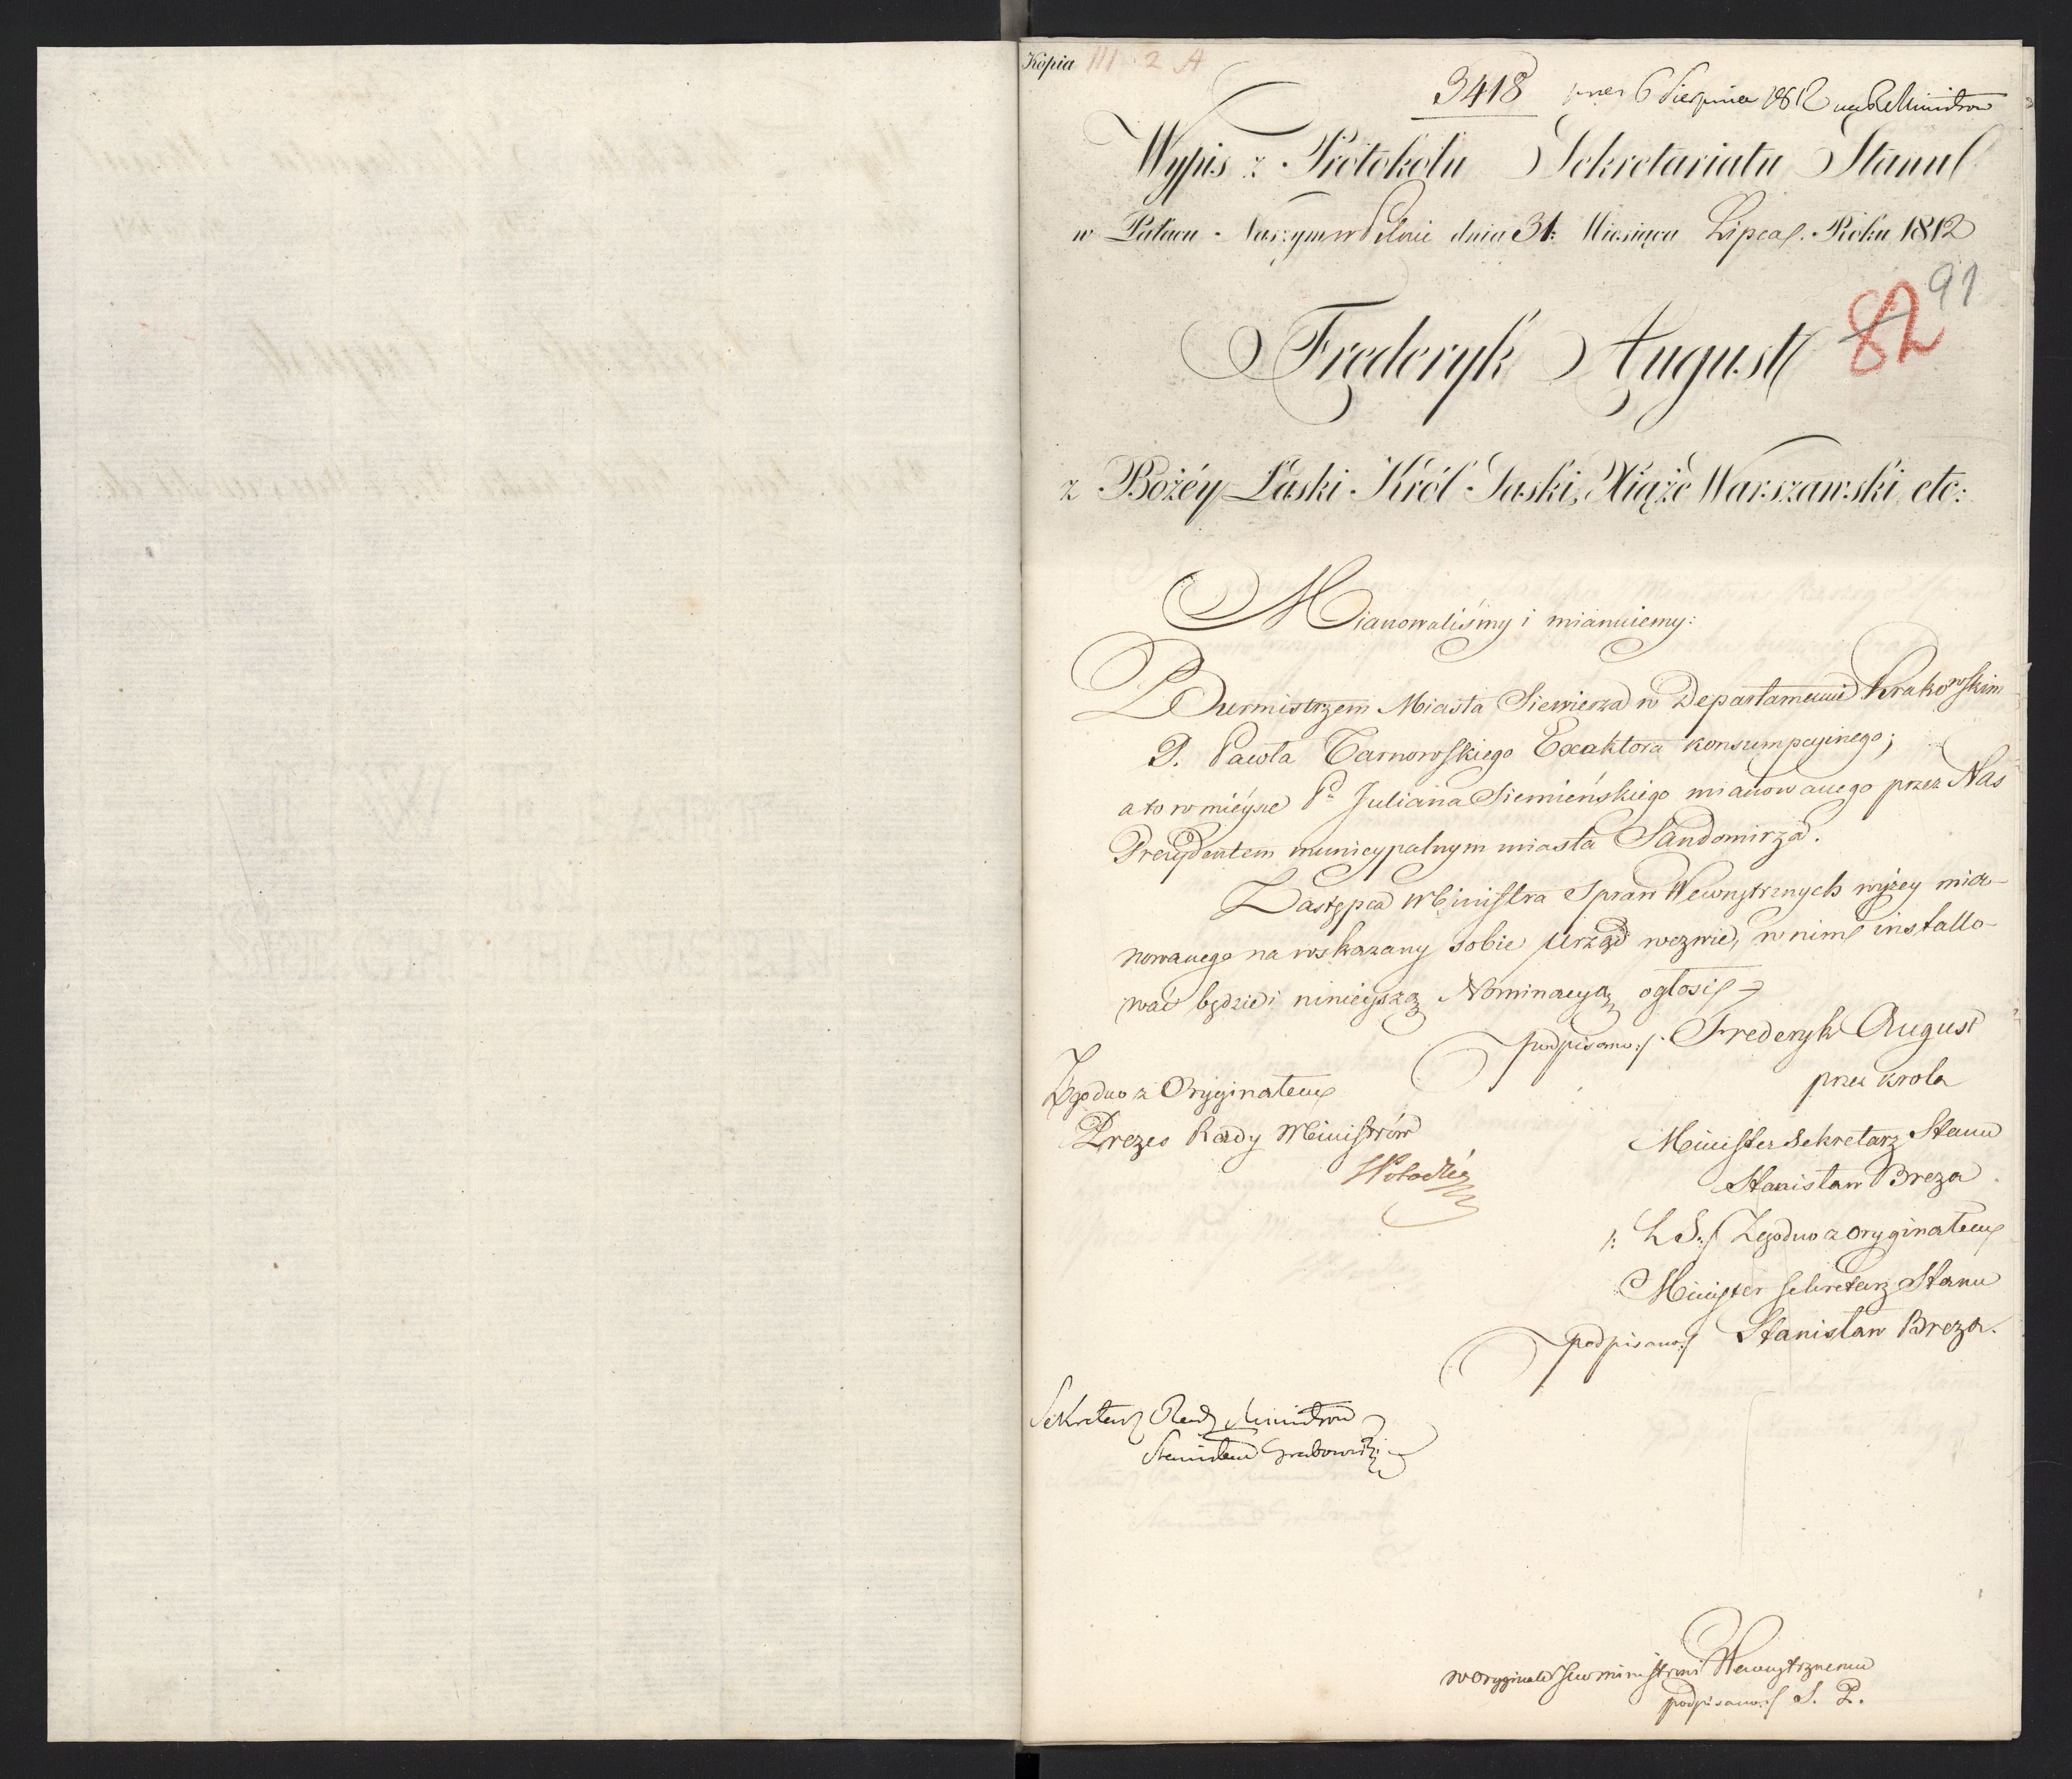 Kopia III 2 A
3418 6 Sierpnia 1812 Ministrow
Wypis z Protokołu Sekretariatu Stanu
w Pałacu Naszym w Pilnic dnia 31: Miesiąca Lipca Roku 1812
91
82
Frederyk August
z Bożéy Łaski Król Saski, Xiąże Warszawski, etc:
Mianowaliśmy i mianuiemy:
Burmistrzem Miasta Siewierza w Departamencie Krakowskim
P. Pawła Tarnowskiego Exaktora konsumpcyinego;
a to w mieysce Pa Juliana Siemieńskiego mianowanego przez Nas
Prezydentem municypalnym miasta Sandomirza.
Zastępca Ministra Spraw Wewnętrznych wyżey mia-
nowanego na wskazany sobie Urząd wezwie, w nim installo-
wać będzie i ninieyszą Nominacyą ogłosi
podpisano:/. Frederyk August
przez krola
Zgodno z Oryginałem
Prezes Rady Ministrów
Minister Sekretarz Stanu
Stanisław Breza
/: L S:/ Zgodno z oryginałem
Minister Sekretarz Stanu
podpisano:/ Stanisław Breza.
Sekretarz Rady Ministrow
Stanisław Grabowski
w oryginale Wewnętrznemu
podpisano:/ S. P.